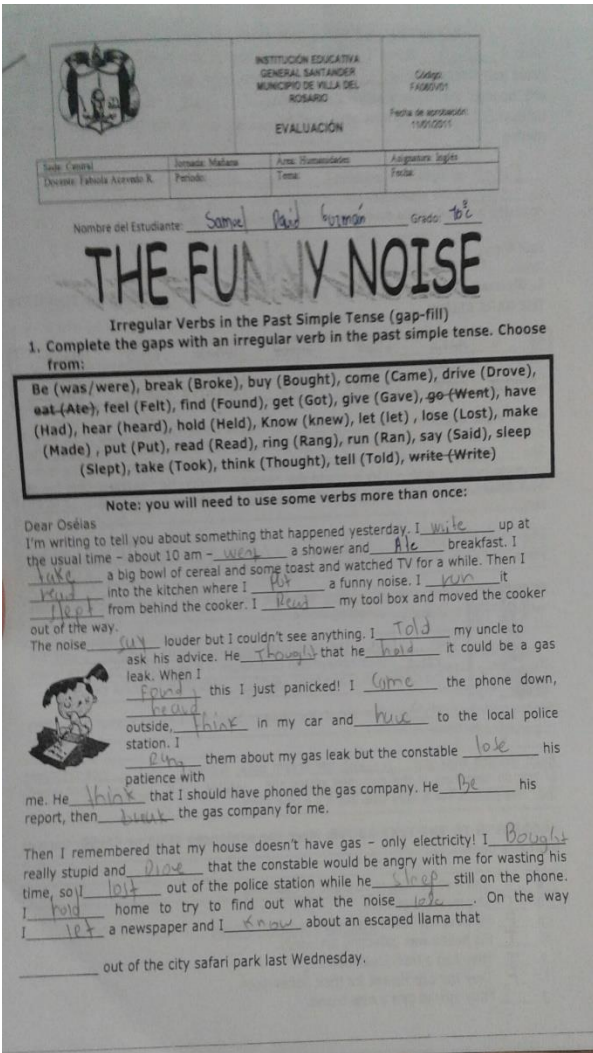 INSTITUCIÓN EDUCATIVA
GENERAL SANTANDER
MUNICIPIO DE VILLA DEL
ROSARIO
EVALUACIÓN
Código:
FA060V01
Fecha de aprobación:
11/01/2011
Sede: Central Jornada: Mañana Área: Humanidades Asignatura: Inglés
Docente: Fabiola Acevedo R. Periodo: Tema: Fecha:
Nombre del Estudiante: Samuel David Guzmán Grado:
THE FUNNY NOISE
Irregular Verbs in the Past Simple Tense (gap-fill)
1. Complete the gaps with an irregular verb in the past simple tense. Choose
from:
Be (was/were), break (Broke), buy (Bought), come (Came), drive (Drove),
eat (Ate), feel (Felt), find (Found), get (Got), give (Gave), go (Went), have
(Had), hear (heard), hold (Held), Know (knew), let (let) , lose (Lost), make
(Made) , put (Put), read (Read), ring (Rang), run (Ran), say (Said), sleep
(Slept), take (Took), think (Thought), tell (Told), write (Write)
Note: you will need to use some verbs more than once:
Dear Oséias
I'm writing to tell you about something that happened yesterday. I write up at
the usual time – about 10 am – went a shower and Ate breakfast. I
take a big bowl of cereal and some toast and watched TV for a while. Then I
read into the kitchen where I put a funny noise. I run it
slept from behind the cooker. I Read my tool box and moved the cooker
out of the way.
The noise say louder but I couldn't see anything. I Told my uncle to
ask his advice. He Thought that he hold it could be a gas
leak. When I
found, this I just panicked! I Came the phone down,
heard
outside, think in my car and have to the local police
station. I
Ring them about my gas leak but the constable lose his
patience with
me. He think that I should have phoned the gas company. He Be his
report, then break the gas company for me.
Then I remembered that my house doesn't have gas – only electricity! I Bought
really stupid and Drove that the constable would be angry with me for wasting his
time, so I lost out of the police station while he sleep still on the phone.
I hold home to try to find out what the noise. On the way
I let a newspaper and I know about an escaped llama that
out of the city safari park last Wednesday.